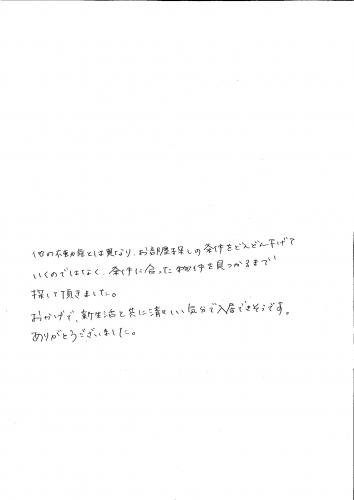 他の不動産とは異なり、お部屋探しの条件をどんどん下げて
いくのではなく、条件に合った物件を見つかるまで
探して頂きました。
おかげで、新生活と共に清々しい気分で入居できそうです。
ありがとうございました。